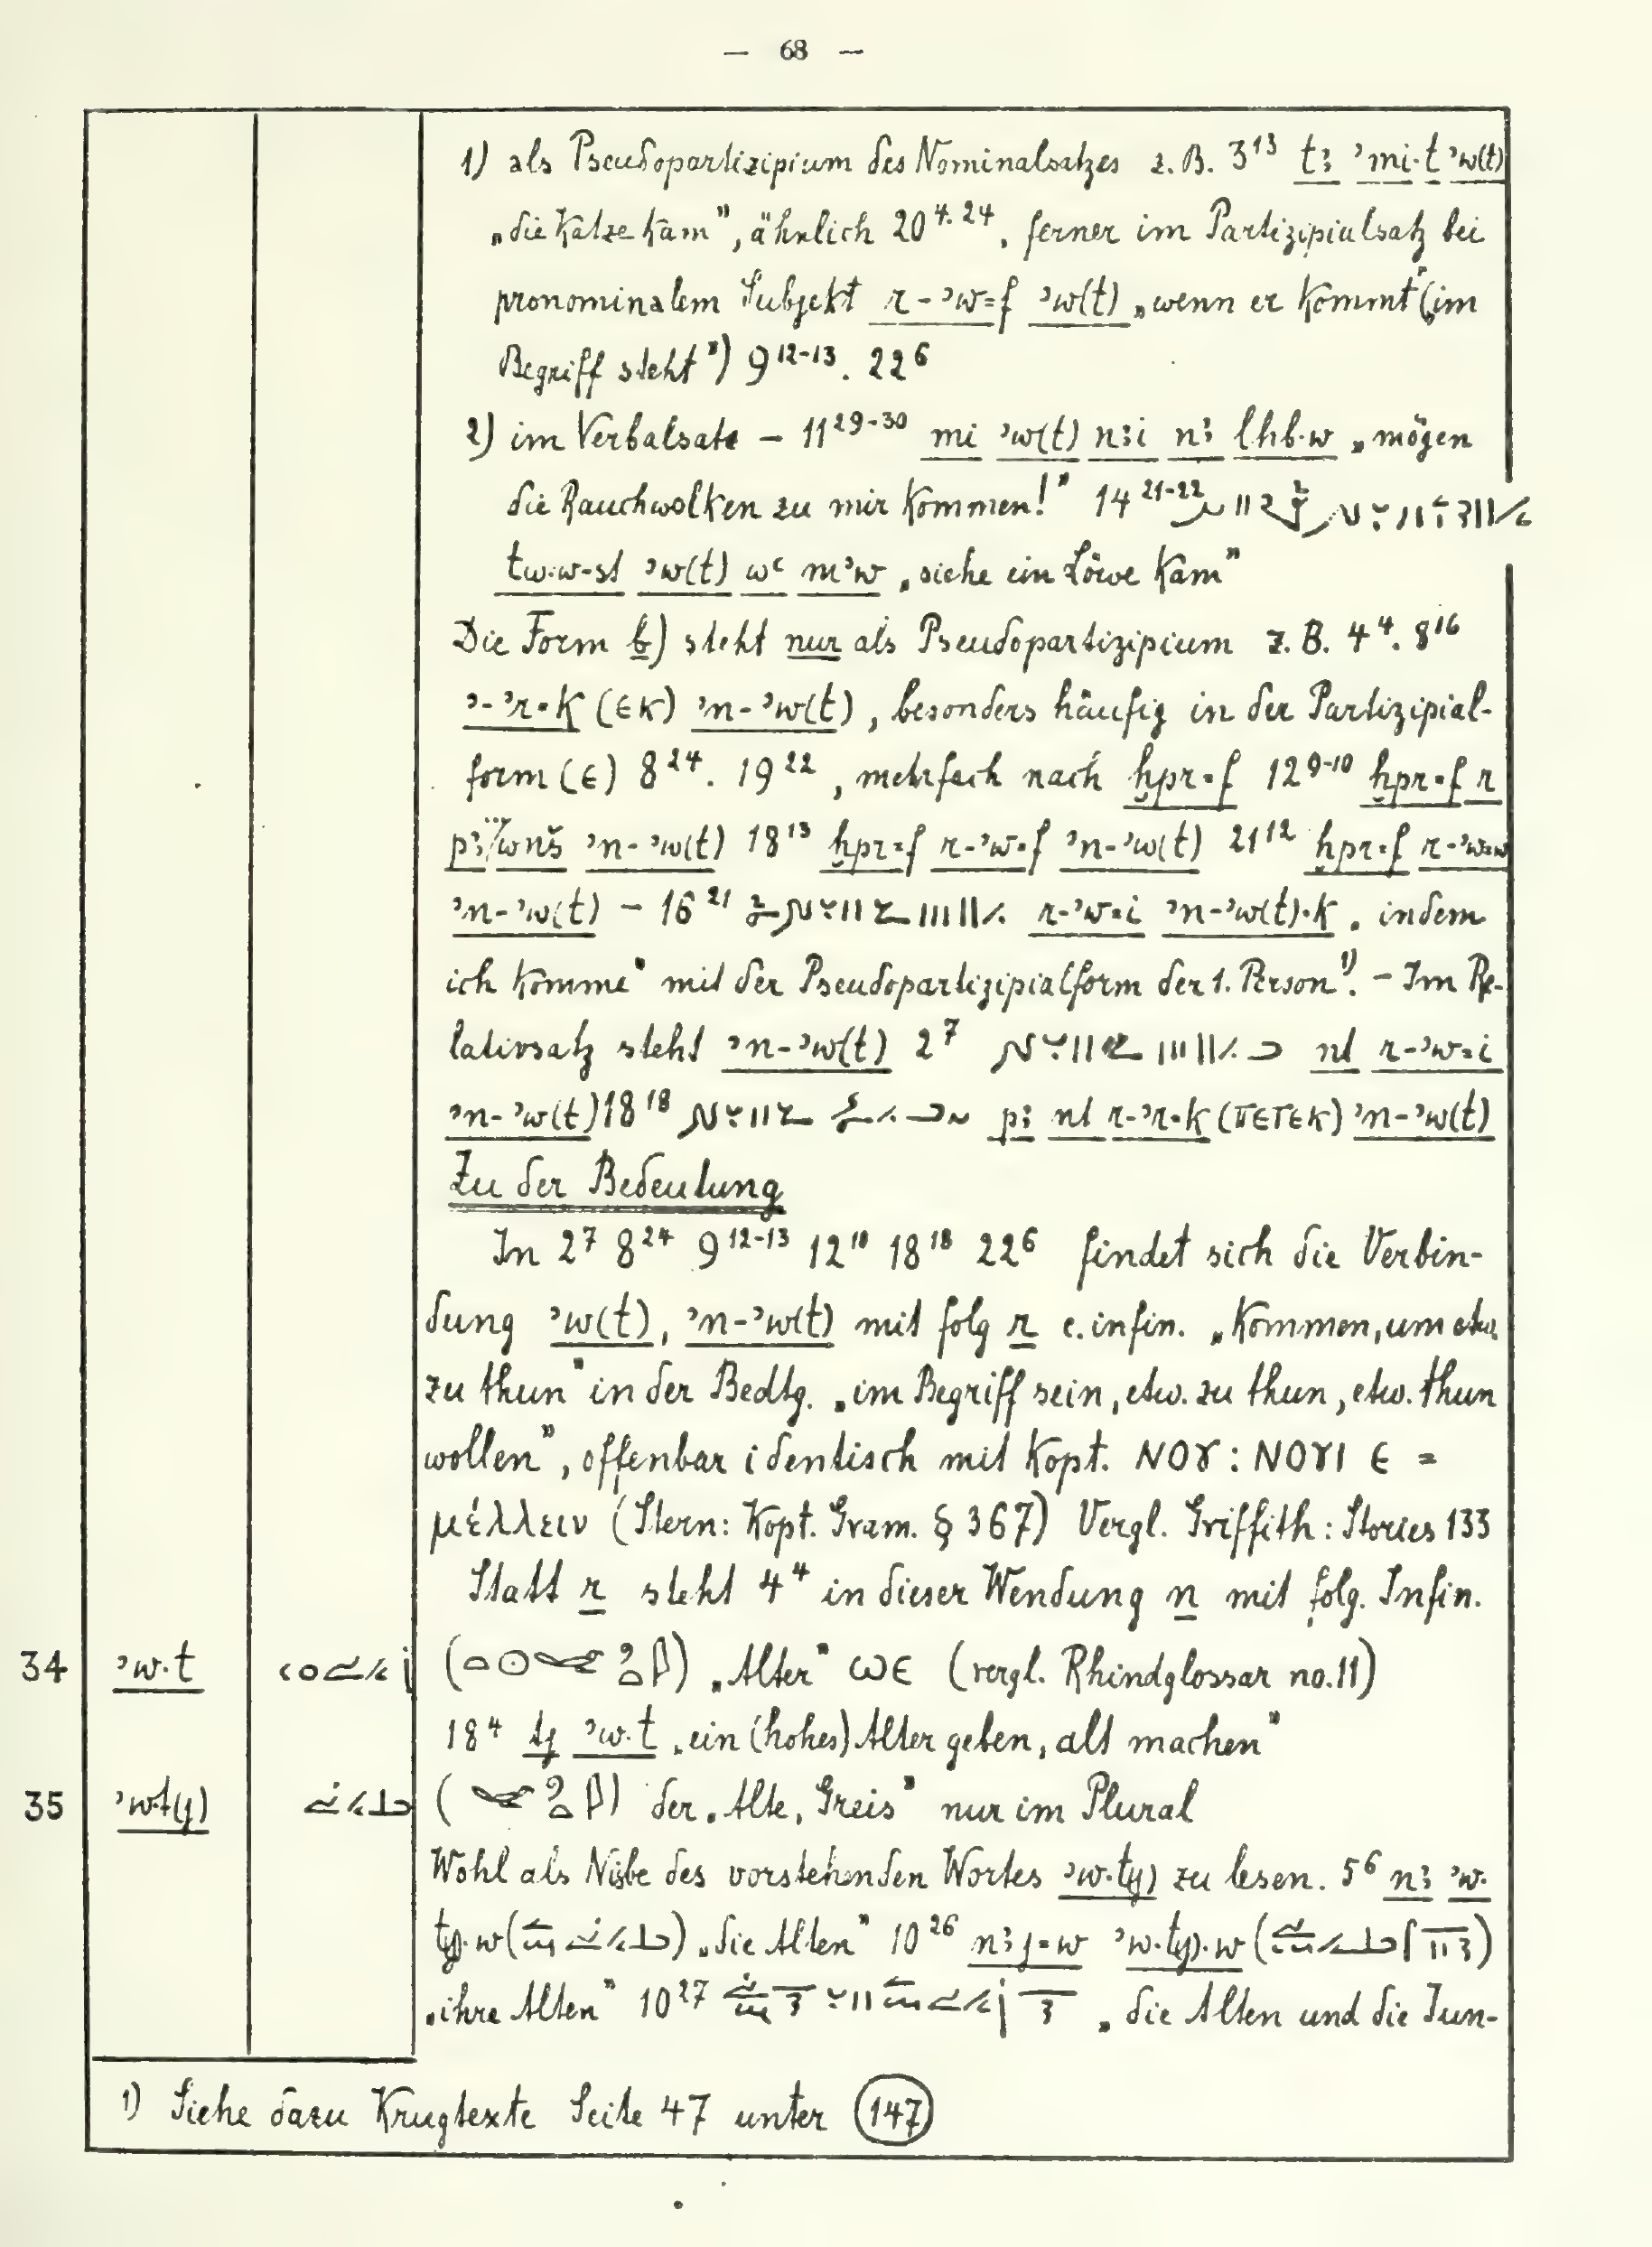 — 68 —
1) als Pseudopartizipium des Nominalsatzes z. B. 3¹³ tꜣ ʾmi·t ʾw(t)
„die Katze kam”, ähnlich 20⁴·²⁴, ferner im Partizipialsatz bei
pronominalem Subjekt r-ʾw=f ʾw(t) „wenn er kommt” („im
Begriff steht”) 9¹²⁻¹³. 22⁶
2) im Verbalsatz – 11²⁹⁻³⁰ mi ʾw(t) n:i nꜣ lhb·w „mögen
die Rauchwolken zu mir kommen!” 14²¹⁻²²
tw·w-st ʾw(t) wꜥ mʾw „siehe ein Löwe kam”
Die Form b) steht nur als Pseudopartizipium z. B. 4⁴. 8¹⁶
ʾ-ʾr·k (ⲉⲕ) ʾn-ʾw(t), besonders häufig in der Partizipial-
form (ⲉ) 8²⁴. 19²², mehrfach nach ḫpr=f 12⁹⁻¹⁰ ḫpr=f r
pꜣ wnš ʾn-ʾw(t) 18¹³ ḫpr=f r-ʾw=f ʾn-ʾw(t) 21¹² ḫpr=f r-ʾw=w
ʾn-ʾw(t) – 16²¹ r-ʾw=i ʾn-ʾw(t)·k „indem
ich komme” mit der Pseudopartizipialform der 1. Person¹⁾. – Im Re-
lativsatz steht ʾn-ʾw(t) 2⁷ nt r-ʾw=i
ʾn-ʾw(t) 18¹⁸ pꜣ nt r-ʾr·k (ⲡⲉⲧⲉⲕ) ʾn-ʾw(t)
Zu der Bedeutung
In 2⁷ 8²⁴ 9¹²⁻¹³ 12¹⁰ 18¹⁸ 22⁶ findet sich die Verbin-
dung ʾw(t), ʾn-ʾw(t) mit folg r c. infin. „kommen, um etw.
zu thun” in der Bedtg. „im Begriff sein, etw. zu thun, etw. thun
wollen”, offenbar identisch mit Kopt. ⲛⲟⲩ : ⲛⲟⲩⲓ ⲉ =
μέλλειν (Stern: Kopt. Gram. § 367) Vergl. Griffith: Stories 133
Statt r steht 4⁴ in dieser Wendung n mit folg. Infin.
34 ʾw·t „Alter” ⲱⲉ (vergl. Rhindglossar no. 11)
18⁴ ty ʾw·t „ein (hohes) Alter geben, alt machen”
35 ʾwt(y) der „Alte, Greis” nur im Plural
Wohl als Nisbe des vorstehenden Wortes ʾw·ty) zu lesen. 5⁶ nꜣ ʾw·
ty)·w „die Alten” 10²⁶ nꜣj=w ʾw·ty)·w
„ihre Alten” 10²⁷ „die Alten und die Jun-
1) Siehe dazu Krugtexte Seite 47 unter (147)